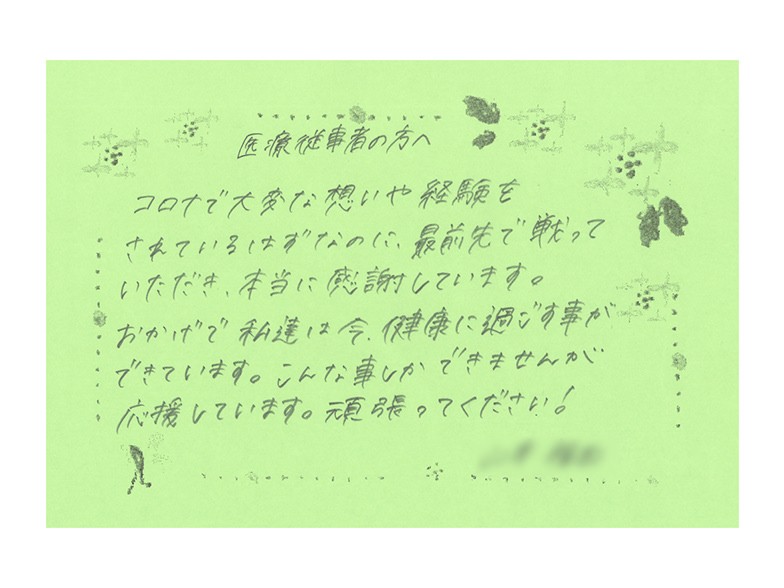 医療従事者の方へ
コロナで大変な想いや経験を
されているはずなのに、最前先で戦って
いただき、本当に感謝しています。
おかげで私達は今、健康に過ごす事が
できています。こんな事しかできませんが
応援しています。頑張ってください!